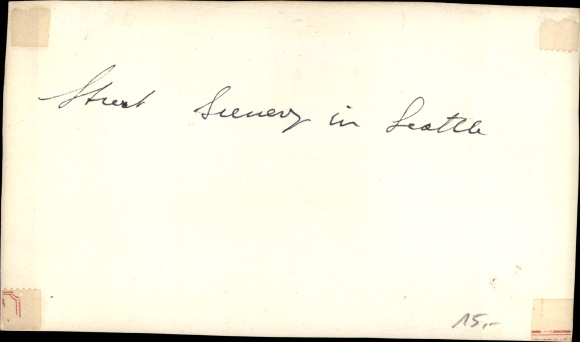 Street Scenery in Seattle
15,-